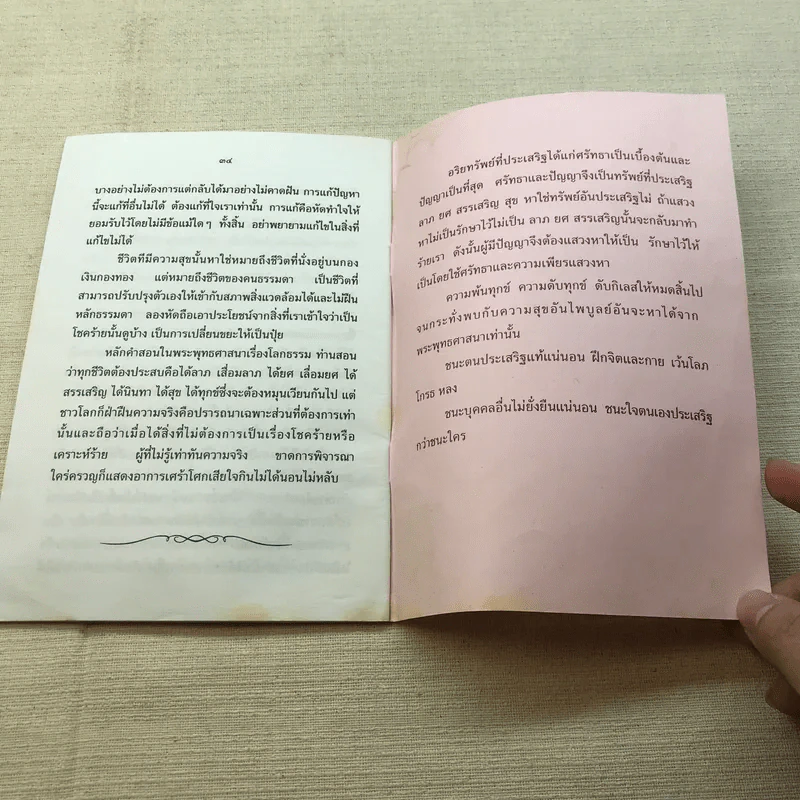 ๓๔
บางอย่างไม่ต้องการแต่กลับได้มาอย่างไม่คาดฝัน การแก้ปัญหา
นี้จะแก้ที่อื่นไม่ได้ ต้องแก้ที่ใจเราเท่านั้น การแก้คือหัดทำใจให้
ยอมรับไว้โดยไม่มีข้อแม้ใด ๆ ทั้งสิ้น อย่าพยายามแก้ไขในสิ่งที่
แก้ไขไม่ได้
ชีวิตที่มีความสุขนั้นหาใช่หมายถึงชีวิตที่นั่งอยู่บนกอง
เงินกองทอง แต่หมายถึงชีวิตของคนธรรมดา เป็นชีวิตที่
สามารถปรับปรุงตัวเองให้เข้ากับสภาพสิ่งแวดล้อมได้และไม่ฝืน
หลักธรรมดา ลองหัดถือเอาประโยชน์จากสิ่งที่เราเข้าใจว่าเป็น
โชคร้ายนั้นดูบ้าง เป็นการเปลี่ยนขยะให้เป็นปุ๋ย
หลักคำสอนในพระพุทธศาสนาเรื่องโลกธรรม ท่านสอน
ว่าทุกชีวิตต้องประสบคือได้ลาภ เสื่อมลาภ ได้ยศ เสื่อมยศ ได้
สรรเสริญ ได้นินทา ได้สุข ได้ทุกข์ซึ่งจะต้องหมุนเวียนกันไป แต่
ชาวโลกก็ฝ่าฝืนความจริงคือปรารถนาเฉพาะส่วนที่ต้องการเท่า
นั้นและถือว่าเมื่อได้สิ่งที่ไม่ต้องการเป็นเรื่องโชคร้ายหรือ
เคราะห์ร้าย ผู้ที่ไม่รู้เท่าทันความจริง ขาดการพิจารณา
ใคร่ครวญก็แสดงอาการเศร้าโศกเสียใจกินไม่ได้นอนไม่หลับ
อริยทรัพย์ที่ประเสริฐได้แก่ศรัทธาเป็นเบื้องต้นและ
ปัญญาเป็นที่สุด ศรัทธาและปัญญาจึงเป็นทรัพย์ที่ประเสริฐ
ลาภ ยศ สรรเสริญ สุข หาใช่ทรัพย์อันประเสริฐไม่ ถ้าแสวง
หาไม่เป็นรักษาไว้ไม่เป็น ลาภ ยศ สรรเสริญนั้นจะกลับมาทำ
ร้ายเรา ดังนั้นผู้มีปัญญาจึงต้องแสวงหาให้เป็น รักษาไว้ให้
เป็นโดยใช้ศรัทธาและความเพียรแสวงหา
ความพ้นทุกข์ ความดับทุกข์ ดับกิเลสให้หมดสิ้นไป
จนกระทั่งพบกับความสุขอันไพบูลย์อันจะหาได้จาก
พระพุทธศาสนาเท่านั้น
ชนะตนประเสริฐแท้แน่นอน ฝึกจิตและกาย เว้นโลภ
โกรธ หลง
ชนะบุคคลอื่นไม่ยั่งยืนแน่นอน ชนะใจตนเองประเสริฐ
กว่าชนะใคร